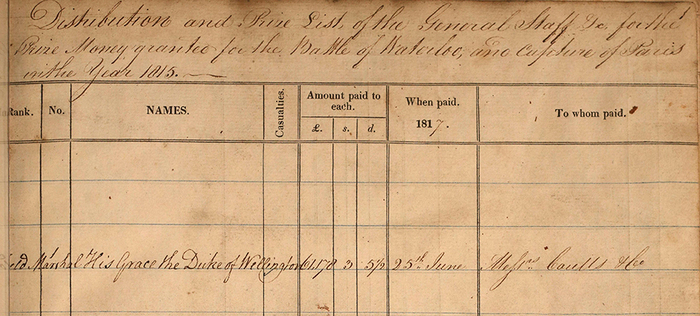 Distribution and Prize List, of the General Staff &c, for the
Prize Money granted for the Battle of Waterloo, and Capture of Paris
in the Year 1815.
Rank. No. NAMES. Casualties. Amount paid to each. When paid. To whom paid.
£. s. d. 1817.
eld Marshal His Grace the Duke of Wellington 3 5½ 25th June Messrs Coutts & Co